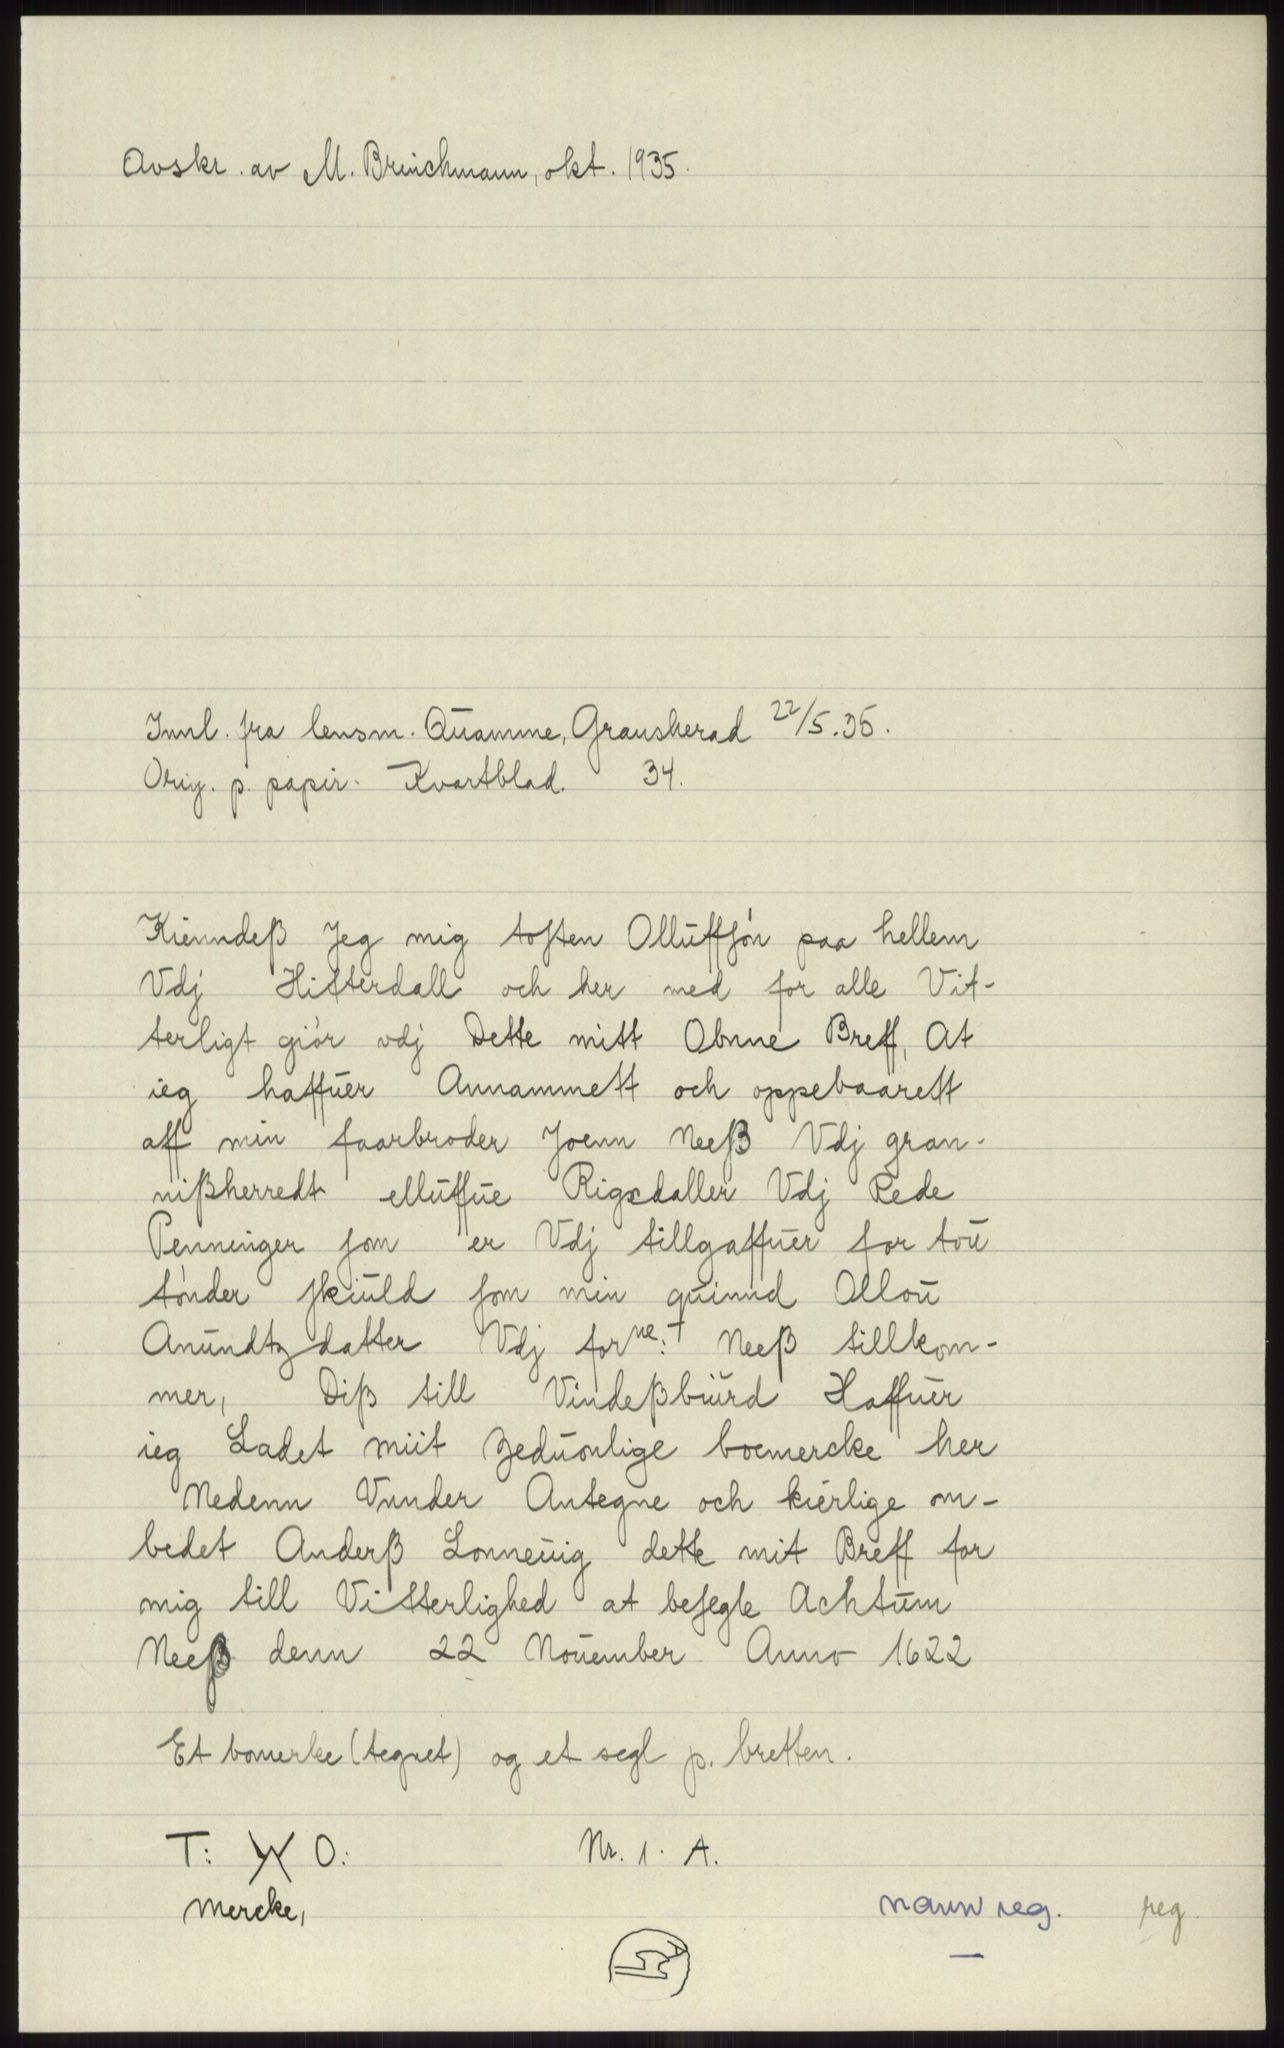 Avskr. av M. Brinchmann, okt. 1935.
Innl. fra lensm. Quamme, Gransherad 22/5.35.
Orig. p. papir. Kvartblad. 34.
Kienndeß Jeg mig tosten Olluffsón paa hellem
Vdj Hitterdall och her med for alle Vit-
terligt giór vdj Dette mitt Obnne Breff, At
ieg haffuer Annammett och oppebaarett
aff min faarbroder Joenn Neeß Vdj gran-
nißherredt elluffue Rigsdaller Vdj Rede
Penninger som er Vdj tillgaffuer for tou
tónder skiuld som min quinnd Ollou
Anundtz datter Vdj forne:t Neeß tillkom-
mer, Diß till Vindeßbiurd Haffuer
ieg Ladet miit zeduonlige boemercke her
Nedenn Vnnder Antegne och kierlige om-
bedet Anderß Lonneuig dette mit Breff for
mig till Vitterlighed at besegle Actum
Neeß denn 22 Nouember Anno 1622
Et bomerke (tegnet) og et segl p. bretten.
T: O: Nr. 1. A.
Mercke,
navnreg. reg